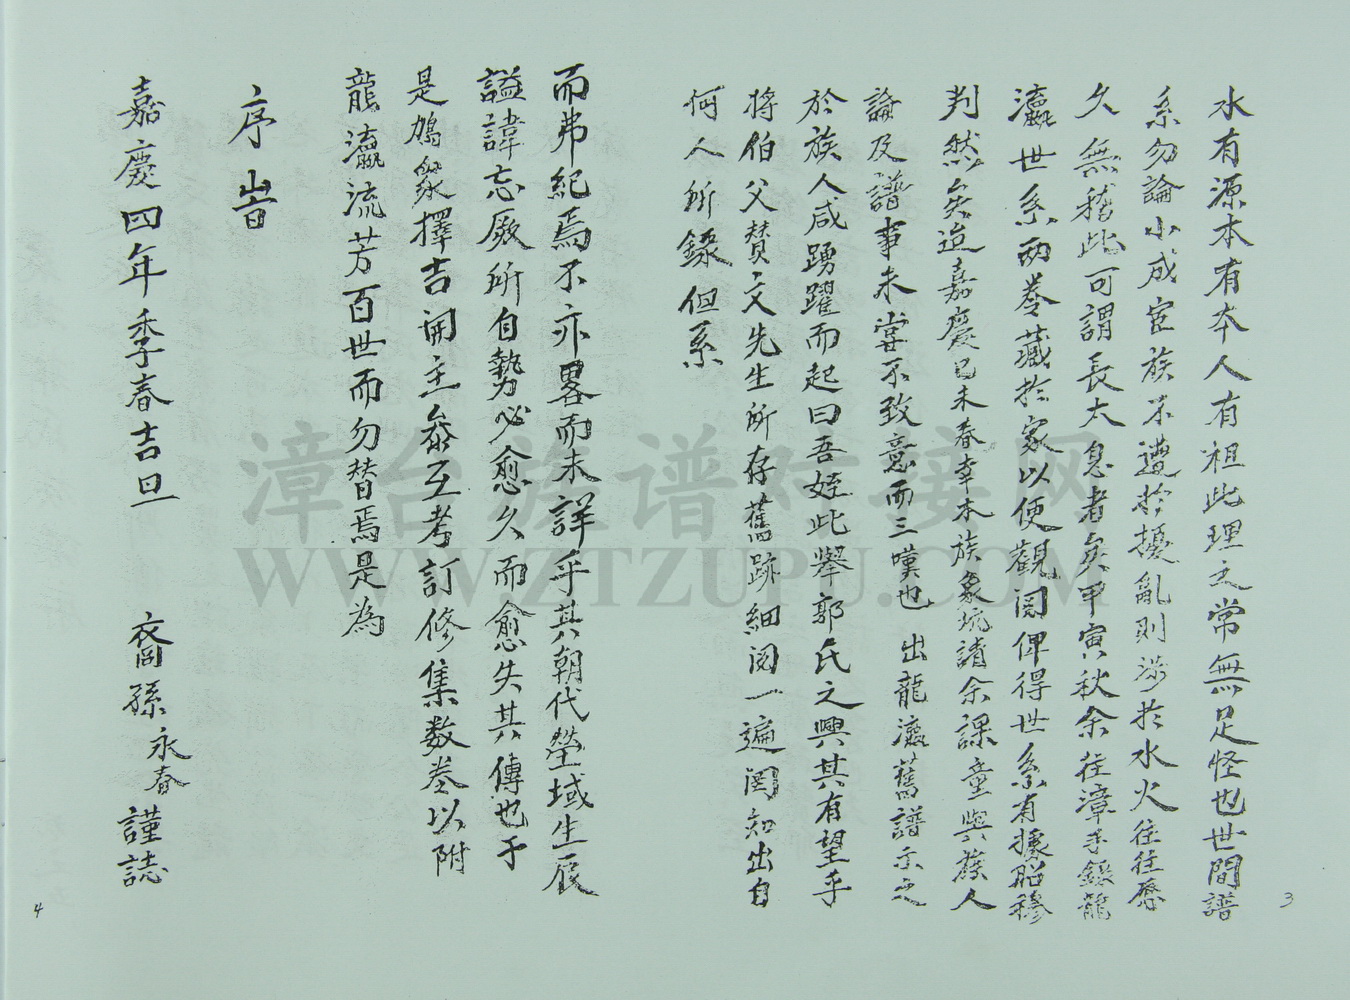 水有源本有夲人有祖此理之常無足怪也世間譜
系勿論小成宦族不遭於擾亂則涉於水火往往歷
久無稽此可謂長太息者矣甲寅秋余往漳手錄龍
瀛世系兩卷藏於家以便觀閱俾得世系有據昭穆
判然矣迨嘉慶己未春幸本族象坑請余課童與族人
論及譜事未嘗不致意而三嘆也出龍瀛舊譜示之
於族人咸踴躍而起曰吾姪此舉郭氏之興其有望乎
將伯父贊文先生所存舊跡細閱一遍罔知出自
何人所錄但系
而弗紀焉不亦畧而未詳乎其朝代塋域生辰
謚諱忘厥所自勢必愈久而愈失其傳也于
是鳩眾擇吉開主叅互考訂修集数卷以附
龍瀛流芳百世而勿替焉是為
序旹
嘉慶四年季春吉旦
裔孫永春謹誌
3
4
漳台族谱对接网
WWW.ZTZUPU.COM